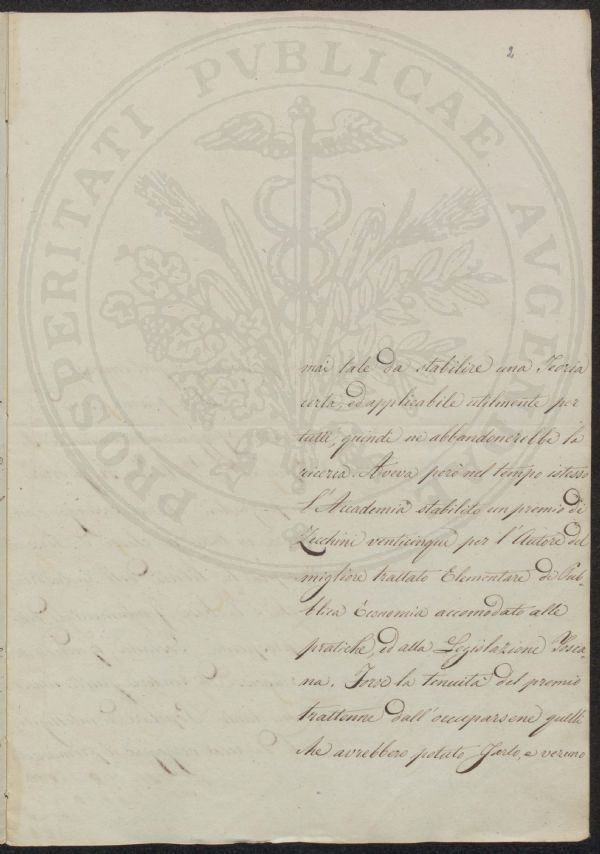 2
PROSPERITATI PVBLICAE AVGENDAE
mai tale da stabilire una Teoria
certa, ed applicabile utilmente per
tutti, quindi ne abbandonerebbe la
ricerca. Aveva però nel tempo istesso
l'Accademia stabilito un premio di
Zecchini venticinque per l'Autore del
migliore trattato Elementare di Pub-
blica Economia accomodato alle
pratiche, ed alla Legislazione Tosca-
na. Forse la tenuità del premio
trattenne dall'occuparsene quelli
che avrebbero potuto farlo, e veruno